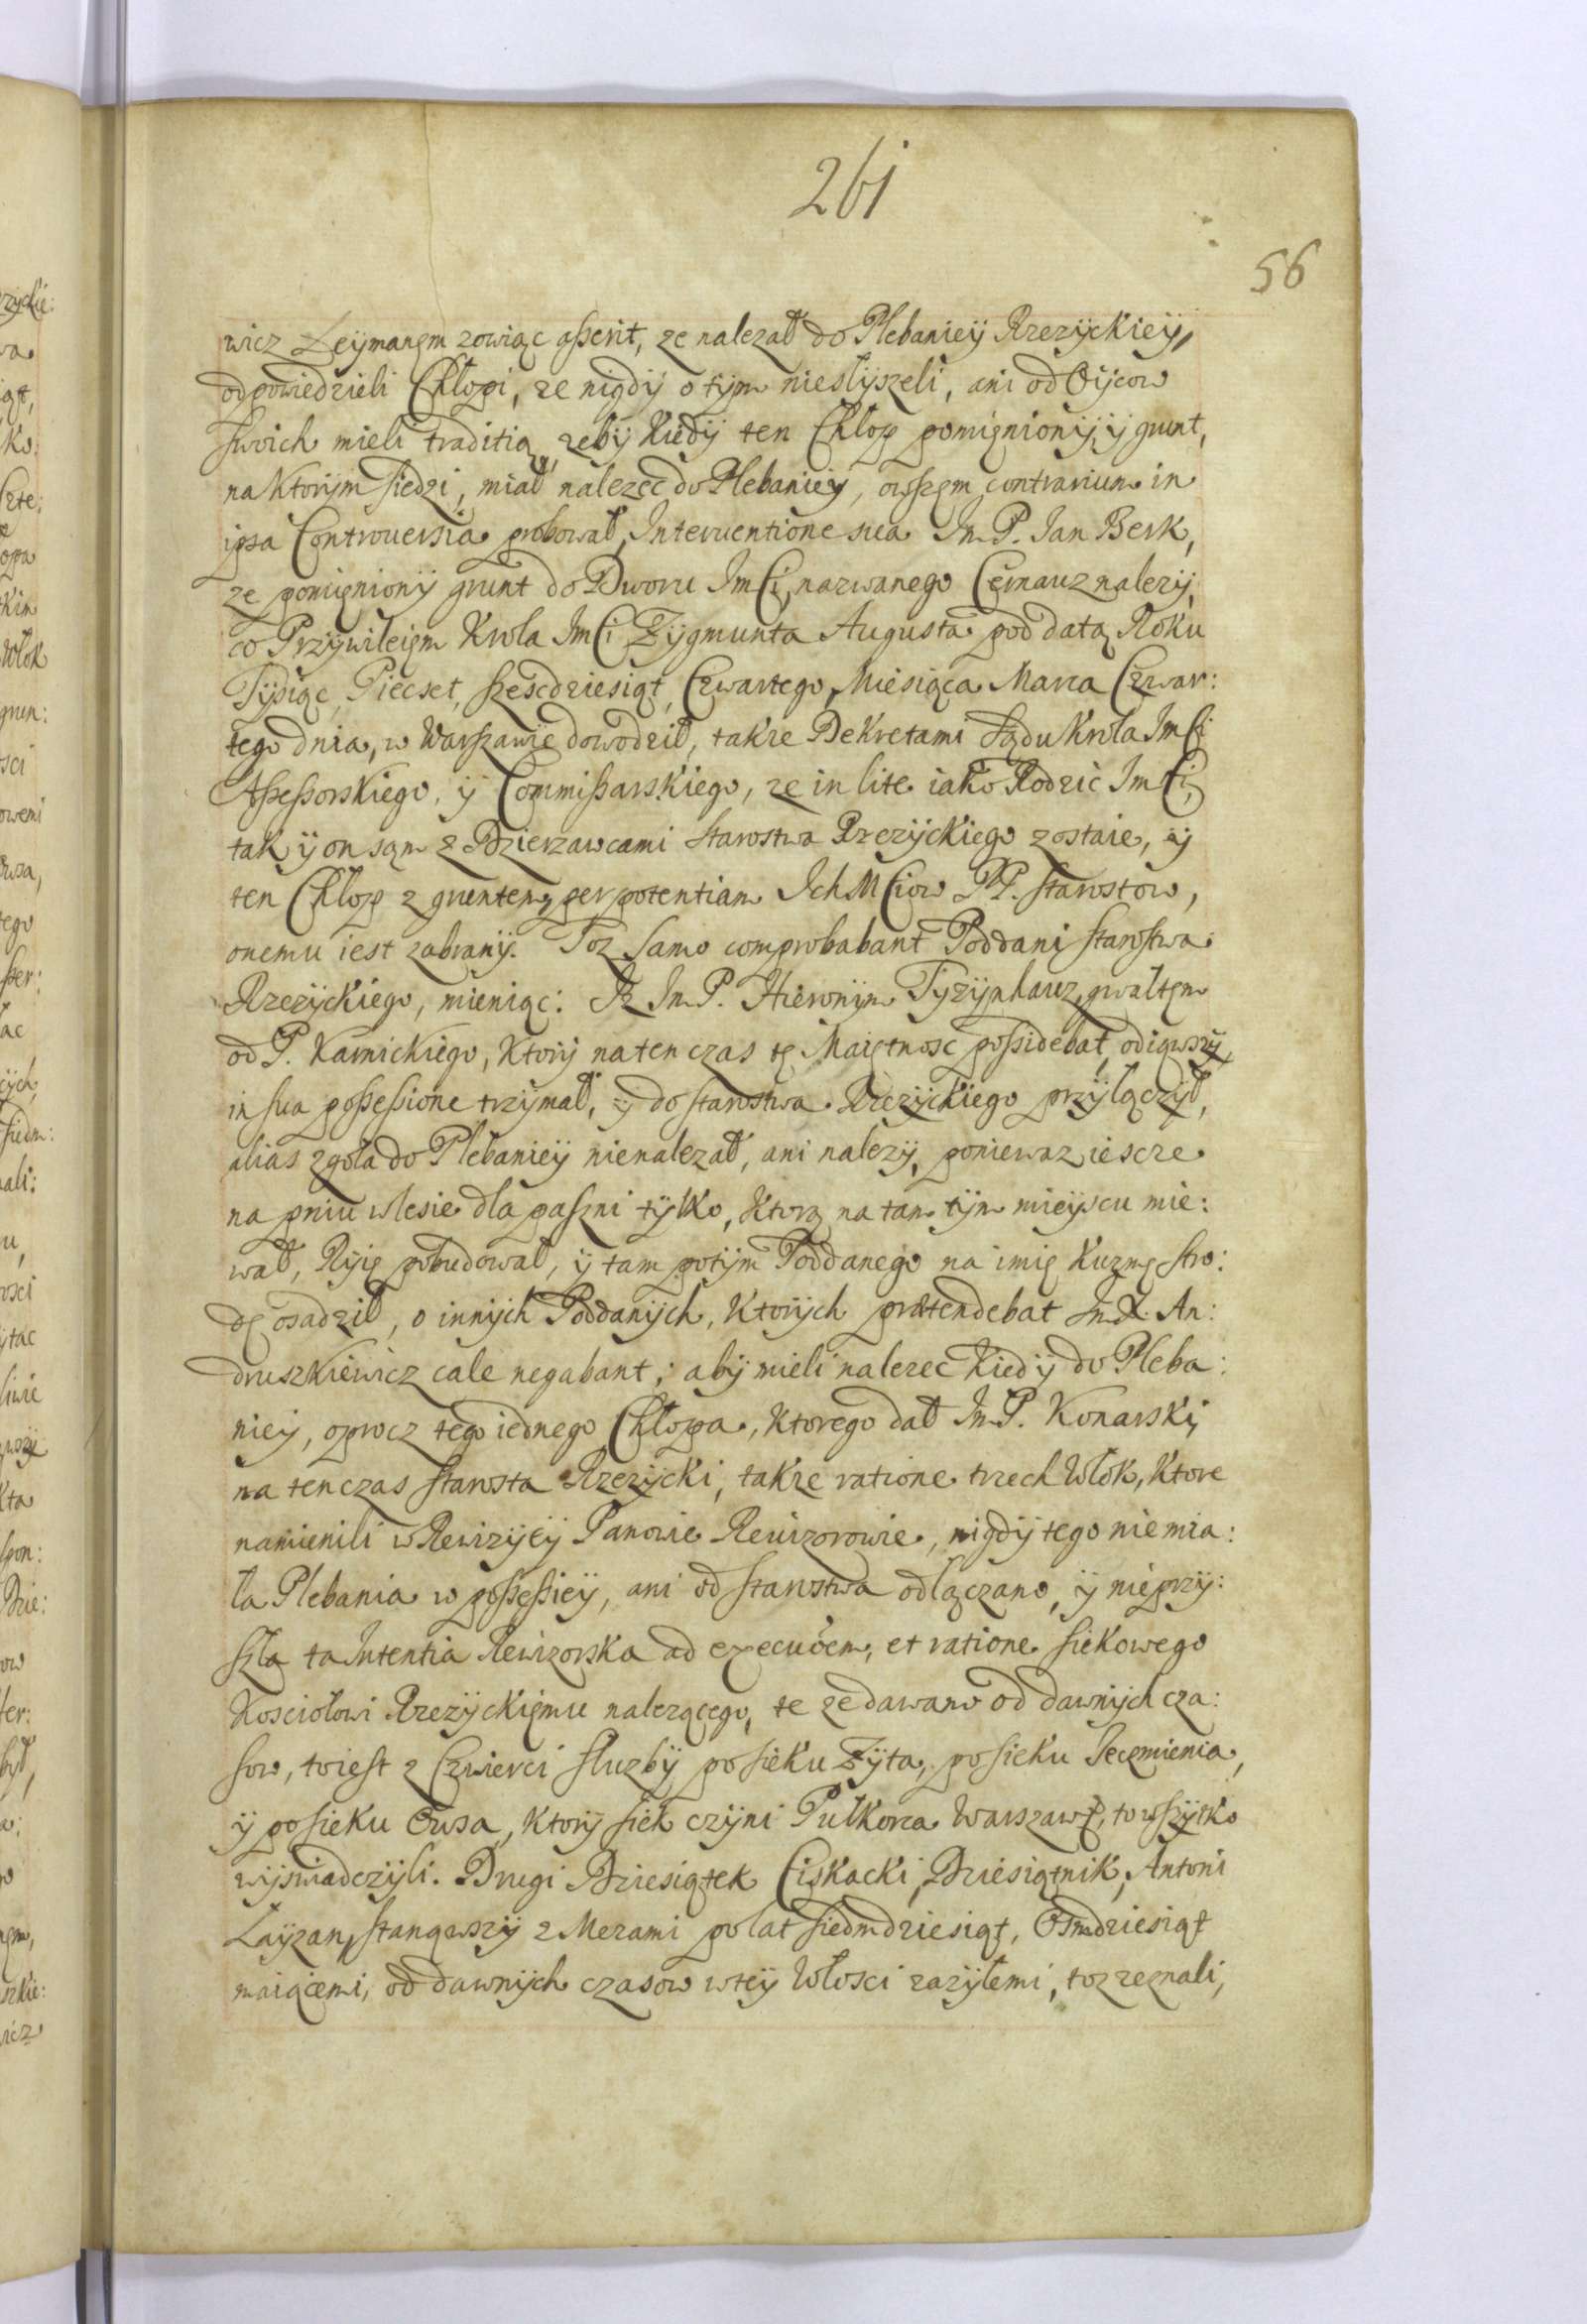 261
56
wicz Leÿmanęm zowiąc asserit, ze nalezał do Plebanieÿ Rzezÿckieÿ,
odpowiedzieli Chłopi, ze nigdÿ o tÿm nieslÿszeli, ani od Oÿcow
swoich mieli traditią, zebÿ kiedÿ ten Chłop pomięnionÿ, ÿ grunt,
na ktorÿm siedzi, miał nalezec do Plebanieÿ, owszęm contrarium in
ipsa Controuersia probował, Interuentione sua Im P. Ian Berk,
ze pomięnionÿ grunt do Dworu ImCi, nazwanego Cernauz nalezÿ,
co Przÿwileięm Krola ImCi Zÿgmunta Augusta pod datą Roku
Tÿsiąc, Piecset, szescdziesiąt, Czwartego, Miesiąca Marca Czwar:
tego dnia, w Warszawie dowodził, takze Dekretami Sądu Krola ImCi
Assessorskiego, ÿ Commissarskiego, ze in lite iako Rodzic ImCi,
tak ÿ on sąm z Dzierzawcami Starostwa Rzezÿckiego zostaie, ÿ
ten Chłop z gruntem, per potentiam IchMCiow PP. Starostow,
onemu iest zabranÿ. Toz Samo comprobabant Poddani Starostwa
Rzezÿckiego, mieniąc: Iz Im P. Hieronÿm Tyzÿnhauz, gwałtęm
od P. Karnickiego, ktorÿ na ten czas tę Maiętnosc possidebat, odiąwszÿ,
in sua possessione trzÿmał, ÿ do starostwa Rzezÿckiego przÿlączÿł,
alias zgoła do Plebanieÿ nienalezał, ani nalezÿ, poniewaz iescze
na pniu w lesie dla paszni tÿlko, ktorą na tam tÿm mieÿscu mie:
wał, Rÿię pobudował, ÿ tam potÿm Poddanego na imię Kuzmę Stro:
dę osadził, o innÿch Poddanÿch, ktorÿch prætendebat Im X. An:
druszkiewicz cale negabant; abÿ mieli nalezec kiedÿ do Pleba:
nieÿ, oprocz tego iednego Chłopa, ktorego dał Im P. Konarski,
na tenczas Starosta Rzezÿcki, takze ratione trzech Włok, ktore
namienili w Rewizÿeÿ Panowie Rewizorowie, nigdÿ tego nie mia:
ła Plebania w possessieÿ, ani od starostwa odlączano, ÿ nie przÿ:
szła ta Intentia Rewizorska ad execuõem, et ratione siekowego
Kosciołowi Rzezÿckięmu nalezącego, te ze dawano od dawnÿch cza:
sow, to iest z Czwierci sluzbÿ po sieku Zÿta, po sieku Ięczmienia,
ÿ po sieku Owsa, ktorÿ siek czÿni Pułkorca Warszaw:, to wszÿtko
wÿswiadczÿli. Drugi Dziesiątek Ciskacki, Dziesiątnik, Antoni
Laÿzan, stanąwszÿ z Mezami po lat siedmdziesiąt, Osmdziesiąt
maiącemi, od dawnÿch czasow w teÿ Włosci zazÿłemi, toz zeznali,